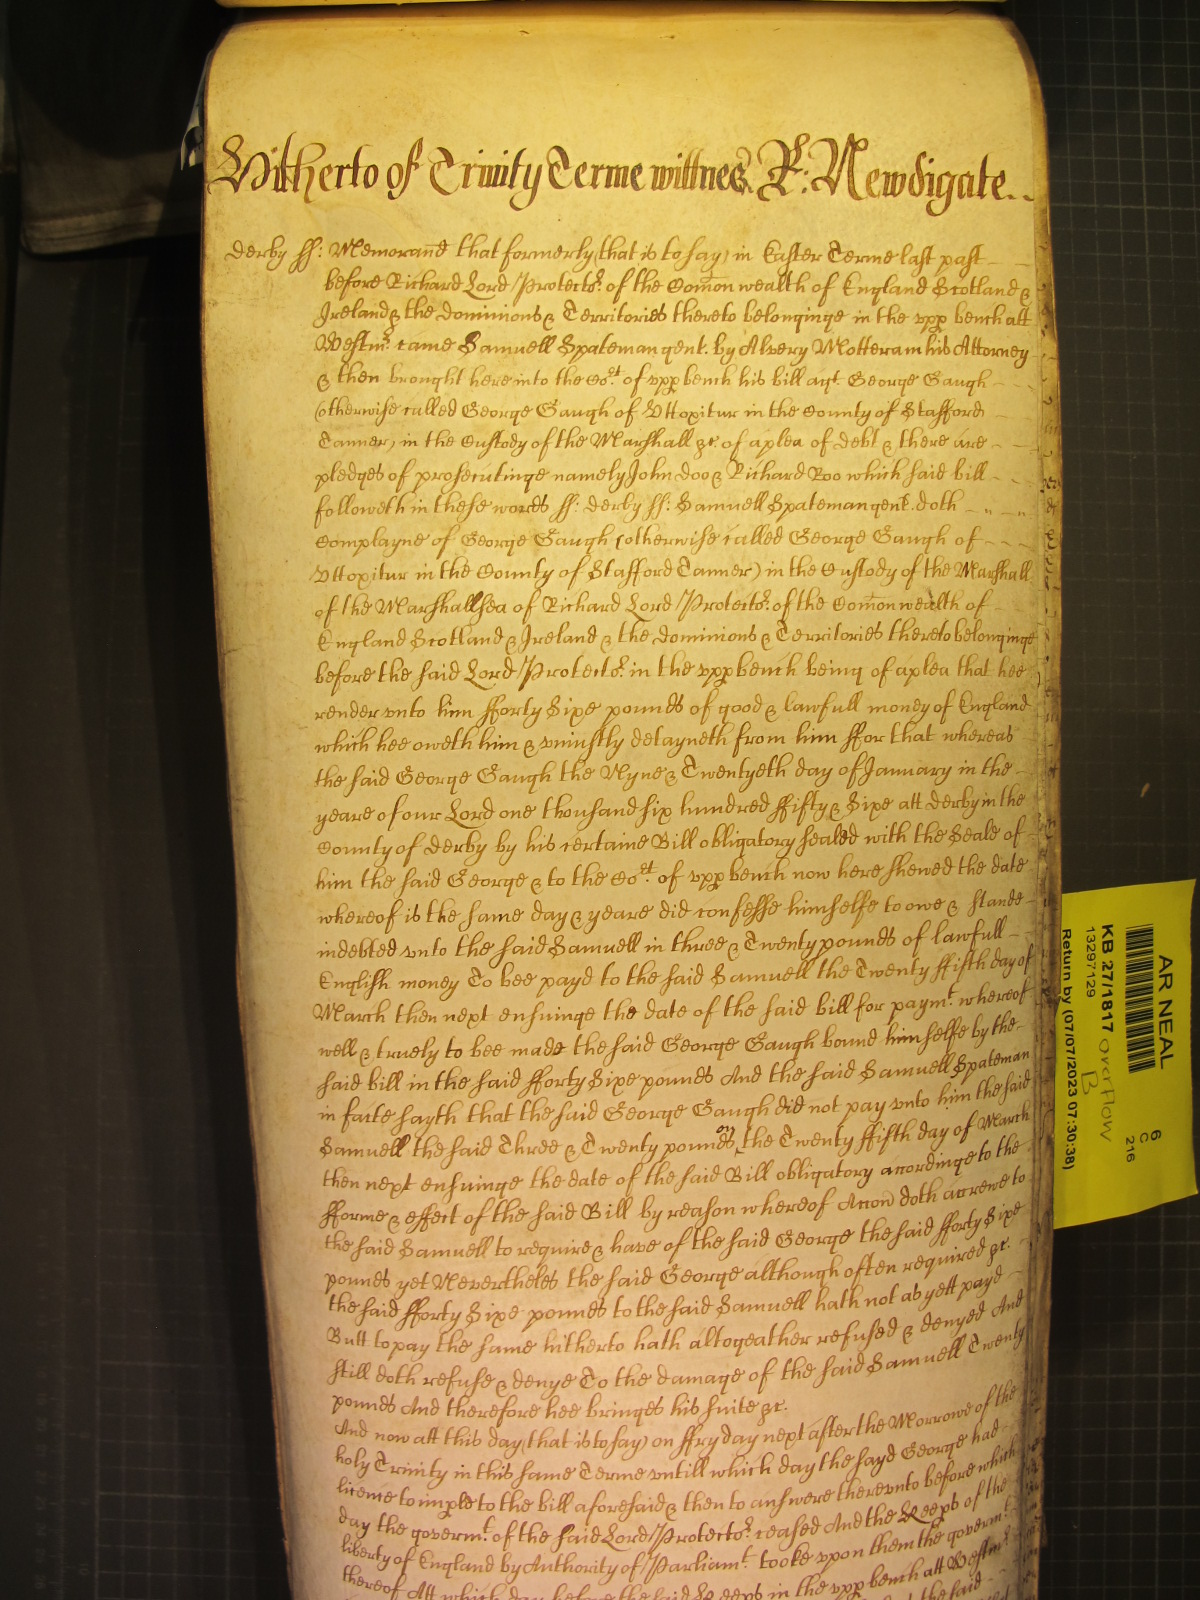 Hitherto of Trinity Terme wittnes R: Newdigate..
Derby ss: Memorand that formerly (that is to say) in Easter Terme last past
before Richard Lord Protecto:r of the Comon wealth of England Scotland &
Ireland & the dominions & Territories thereto belonginge in the upp bench att
Westm:r came Samuell Spateman gent. by Alvery Motteram his Attorney
& then brought here into the Co:rt of upp bench his bill agt. George Gaugh
(otherwise called George Gaugh of Uttoxitur in the County of Stafford
Tanner) in the Custody of the Marshall &c. of a plea of debt & there are
pledges of prosecutinge namely John Doo & Richard Roo which said bill
followeth in these words ss: derby ss: Samuell Spateman gent. doth
Complayne of George Gaugh (otherwise called George Gaugh of
Uttoxitur in the County of Stafford Tanner) in the Custody of the Marshall
of the Marshallsea of Richard Lord Protecto:r of the Comon wealth of
England Scotland & Ireland & the dominions & Territories thereto belonginge
before the said Lord Protecto:r in the upp bench being of a plea that hee
render unto him fforty Sixe pounds of good & lawfull money of England
which hee oweth him & uniustly detayneth from him ffor that whereas
the said George Gaugh the Nyne & Twentyeth day of January in the
yeare of our Lord one thousand six hundred ffifty & Sixe att derby in the
County of derby by his certaine Bill obligatory sealed with the Seale of
him the said George & to the Co:rt of upp bench now here shewed the date
whereof is the same day & yeare did confesse himselfe to owe & stande
indebted unto the said Samuell in three & Twenty pounds of lawfull
English money To bee payd to the said Samuell the Twenty ffifth day of
March then next ensuinge the date of the said bill for paym:t whereof
well & truely to bee made the said George Gaugh bound himselfe by the
said bill in the said fforty Sixe pounds And the said Samuell Spateman
in facte sayth that the said George Gaugh did not pay unto him the said
Samuell the said Three & Twenty pounds on the Twenty ffifth day of March
then next ensuinge the date of the said Bill obligatory accordinge to the
fforme & effect of the said Bill by reason whereof Accon doth accrewe to
the said Samuell to require & have of the said George the said fforty Sixe
pounds yet Nevertheles the said George although often required &c.
the said fforty Sixe pounds to the said Samuell hath not as yett payd
Butt to pay the same hitherto hath altogeather refused & denyed And
still doth refuse & denye To the damage of the said Samuell Twenty
pounds And therefore hee bringes his suite &c.
And now att this day (that is to say) on ffryday next after the Morrowe of the
holy Trinity in this same Terme untill which day the sayd George had
licence to imple to the bill aforesaid & then to answere thereunto before which
day the governm:t of the said Lord Protecto:r ceased And the Keeps of the
liberty of England by Authority of Parliam:t tooke upon them the governm:t
thereof Att which day before the said Keeps in the upp bench att Westm:r
AR NEAL
KB 27/1817 overflow
13297129 B
Return by (07/07/2023 07:30:38)
6
C
216